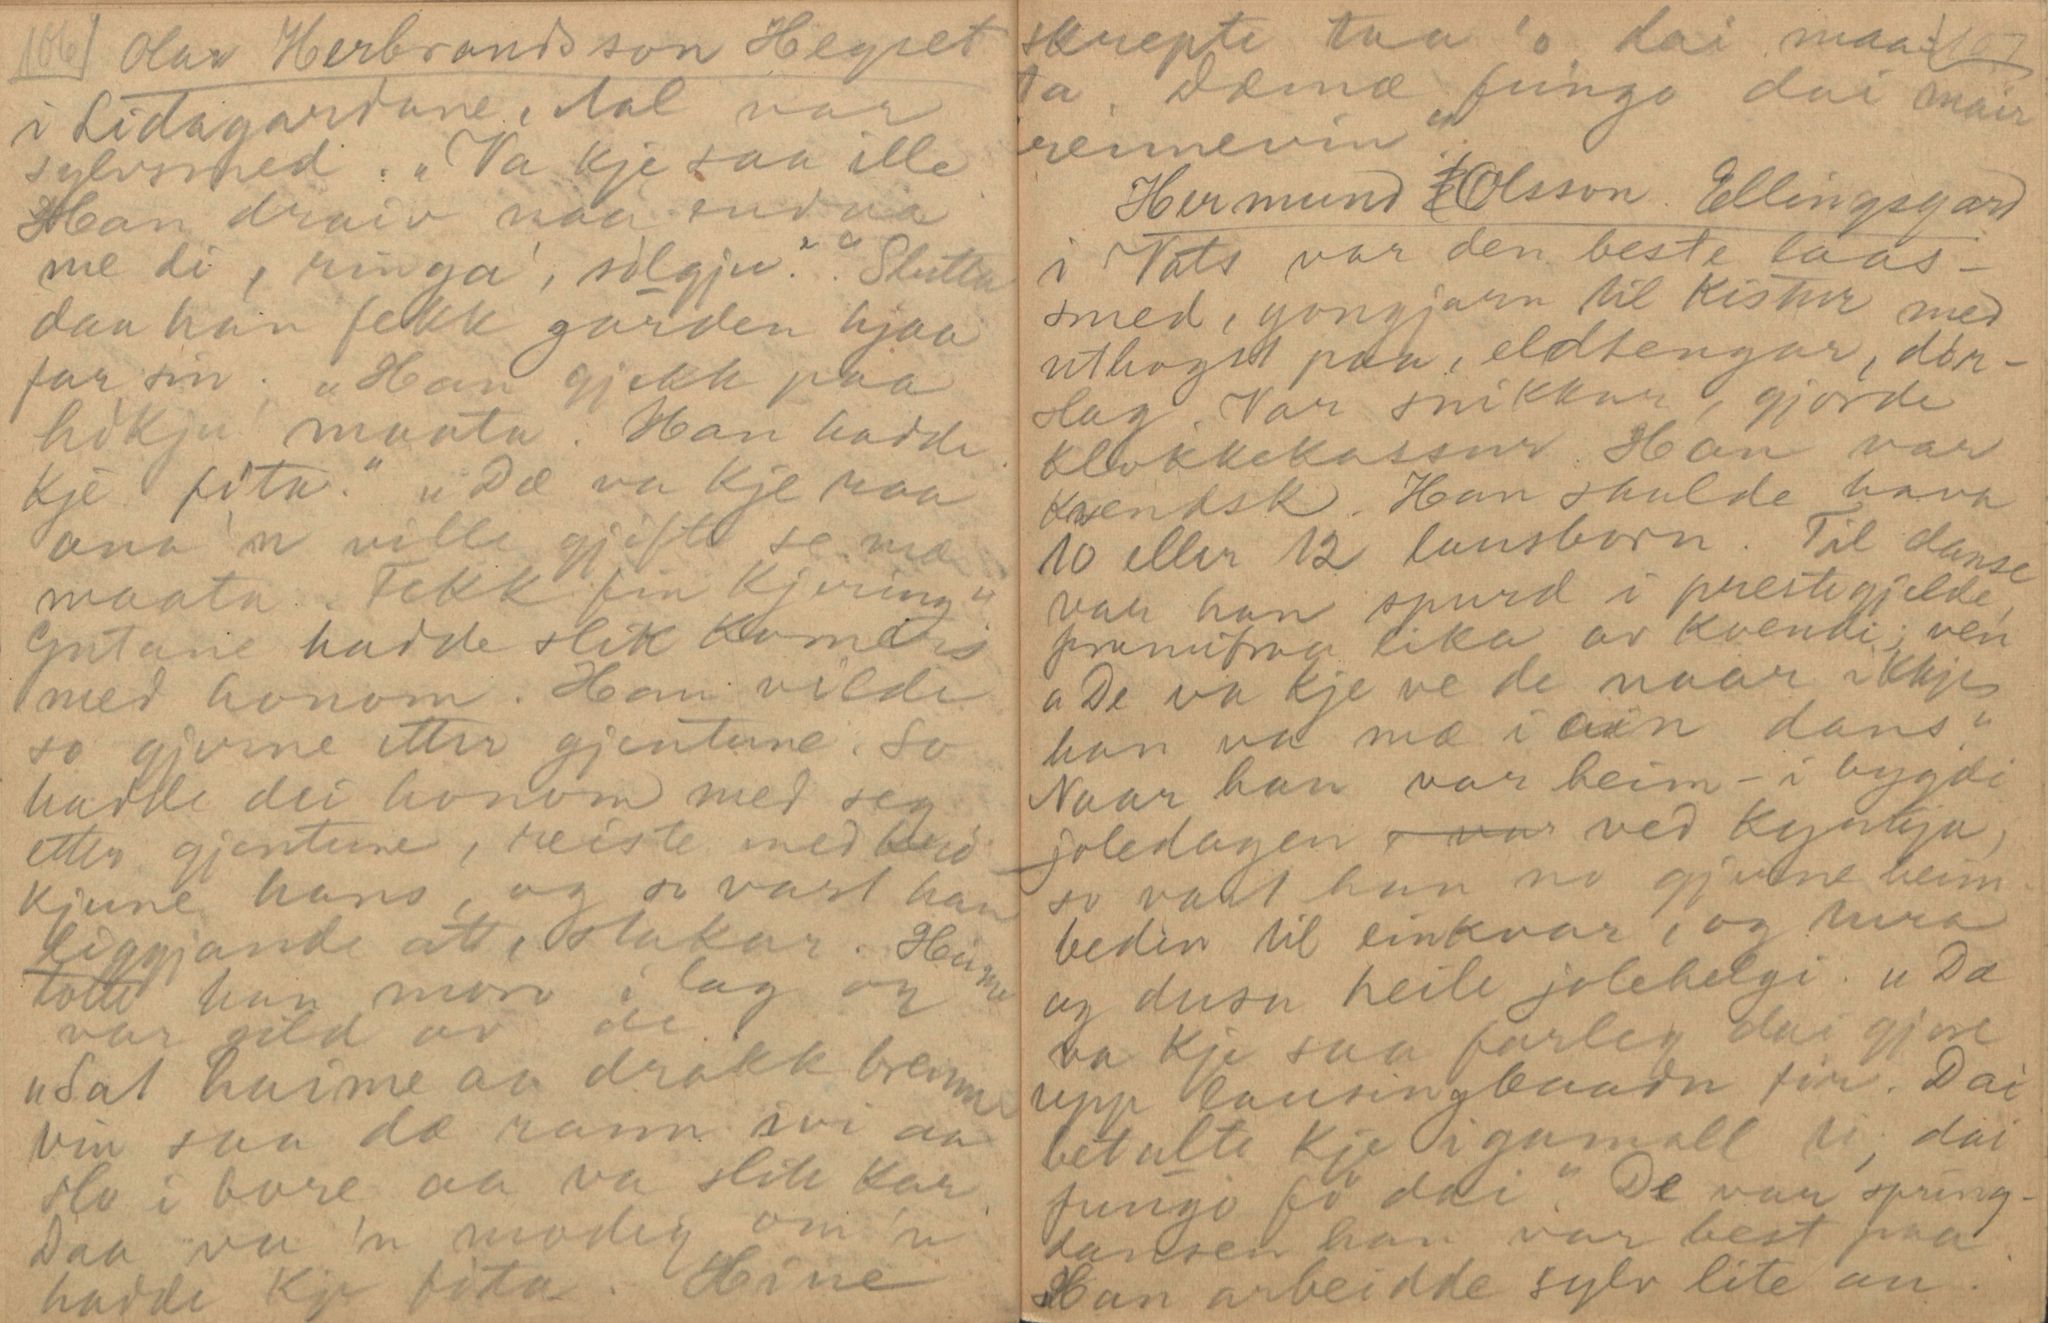 106] Olav Herbrandsson Hegset
i Lidagardane, Aal var
sylvsmed. „Va kje saa ille
Han draiv naa sudva
me di, ringa, sølgju." Slutta
daa han fekk garden hjaa
far sin. „Han gjekk paa
maata. Han hadde
kje fita." „Dæ va kje raa
ana 'n ville gjifte se mæ
maata. Fekk fin kjering"
Gutane hadde slik komers
med honom. Han vilde
so gjerne etter gjentune. So
hadde dei honom med seg
etter gjentune, reiste med brø-
kjune hans, og so vart han
liggjande att, stakar. Heime
totte han moro i lag og
var gild av de
„Sat haime aa drakk brenne
vin saa dæ rann ivi aa
slo i bore aa va slik kar
Daa va 'n modig om 'n
hadde kje fita. Hine
skrepte taa 'o dai maa [107
ta. Dæmæ fingo dai mair
reinnevin"
Hermund Olsson Ellingsgard
i Vats var den beste laas-
smed, gongjarn til kistur med
uthogst paa, eldtengar, dør-
slag Var snikkar, gjorde
klokkekassur. Han var
kvendsk. Han skulde hava
10 eller 12 lausborn. Til danse
var han spurd i prestegjelde,
framifraa lika av kvendi; ven
„De va kje ve de naar ikkje
han va mæ i ain dans"
Naar han var heim - i bygdi
joledagen ved kyrkja,
so vart han no gjerne heim-
beden til einkvar, og tura
og dusa heile jolehelgi. „Dæ
va kje saa farleg dai gjore
upp lausingbaadn fir. Dai
betalte kje i gamall ti, dai
fingo fø dai". De var spring-
dansen han var best paa.
Han arbeidde sylv lite an.